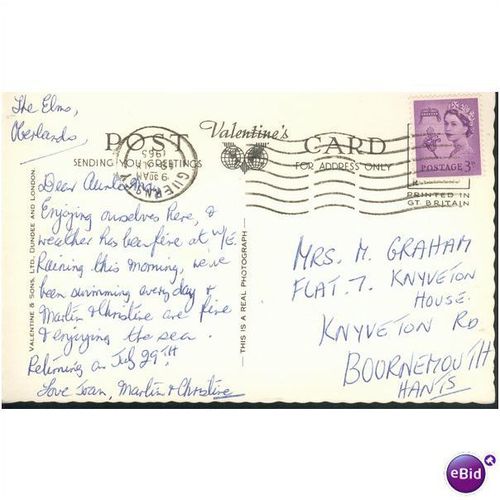 The Elms,
Oberlands
POST Valentine's CARD
SENDING YOU GREETINGS
FOR ADDRESS ONLY
GUERNSEY
1965
POSTAGE 3D
PRINTED IN
GT BRITAIN
VALENTINE & SONS, LTD. DUNDEE AND LONDON.
THIS IS A REAL PHOTOGRAPH
Dear Aunt
Enjoying ourselves here, &
weather has been fine at W/E.
Raining this morning, we've
been swimming everyday &
Martin & Christine are fine
& enjoying the sea.
Returning on July 29TH
Love Joan, Martin & Christine
MRS. M. GRAHAM
FLAT. 7. KNYVETON
HOUSE.
KNYVETON RD.
BOURNEMOUTH
HANTS
eBid